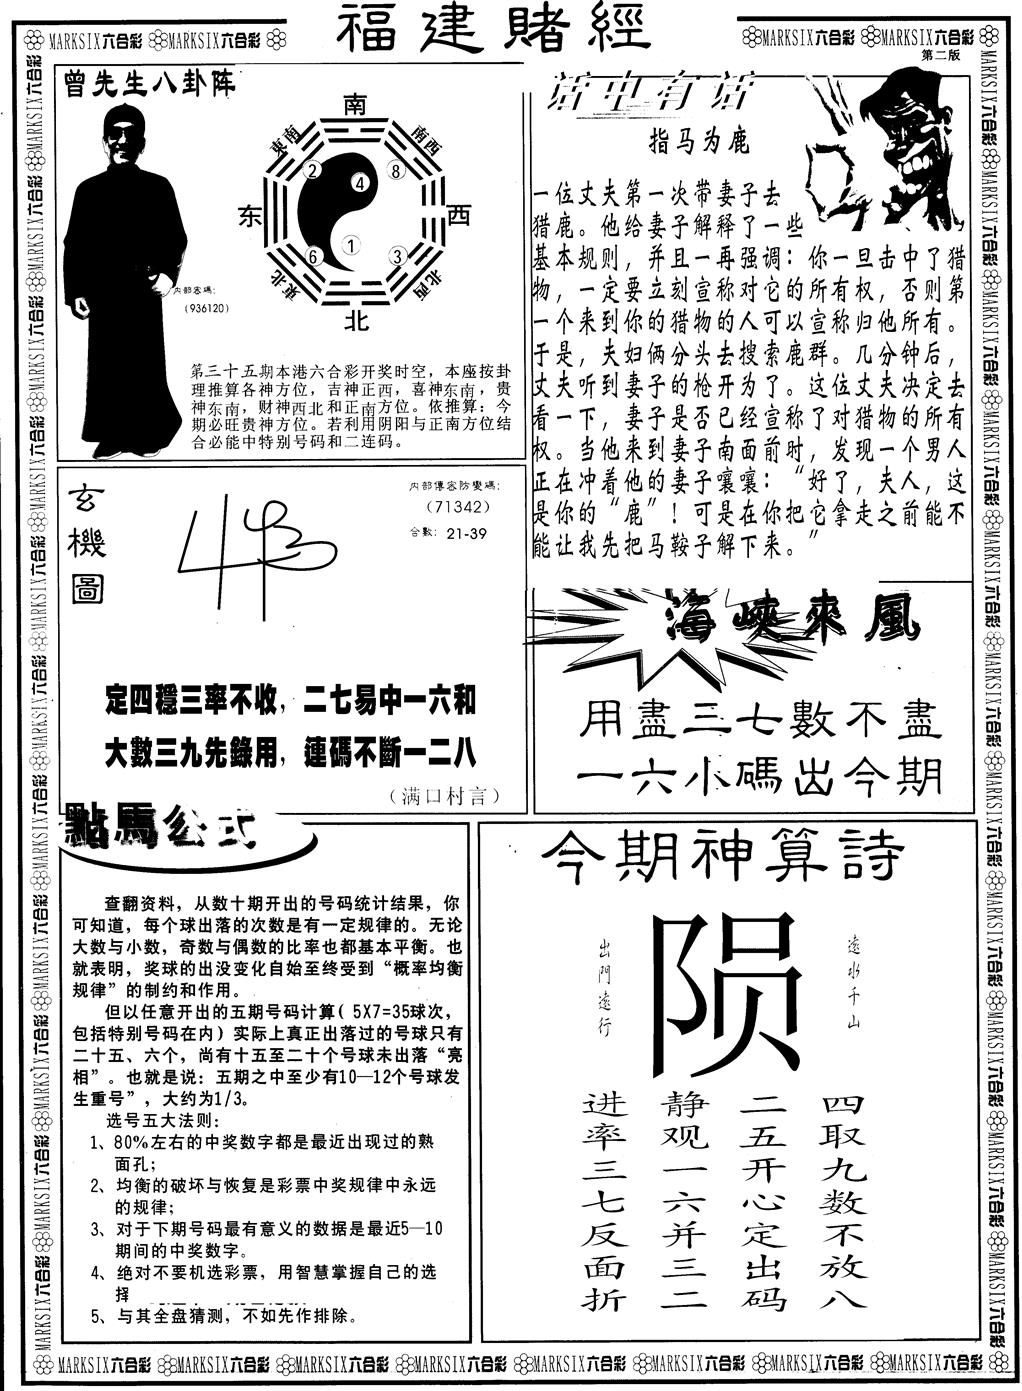 福建賭經
MARKSIX六合彩 MARKSIX六合彩
MARKSIX六合彩 MARKSIX六合彩
第二版
曾先生八卦阵
南
東南
南西
2
4
8
东
西
6
1
3
東北
北西
北
内部密碼:
(936120)
第三十五期本港六合彩开奖时空，本座按卦
理推算各神方位，吉神正西，喜神东南，贵
神东南，财神西北和正南方位。依推算：今
期必旺贵神方位。若利用阴阳与正南方位结
合必能中特别号码和二连码。
话中有话
指马为鹿
一位丈夫第一次带妻子去
猎鹿。他给妻子解释了一些
基本规则，并且一再强调：你一旦击中了猎
物，一定要立刻宣称对它的所有权，否则第
一个来到你的猎物的人可以宣称归他所有。
于是，夫妇俩分头去搜索鹿群。几分钟后，
丈夫听到妻子的枪开为了。这位丈夫决定去
看一下，妻子是否已经宣称了对猎物的所有
权。当他来到妻子南面前时，发现一个男人
正在冲着他的妻子嚷嚷：“好了，夫人，这
是你的“鹿”！可是在你把它拿走之前能不
能让我先把马鞍子解下来。”
玄機圖
内部傳密防變碼:
(71342)
合數: 21-39
定四穩三率不收，二七易中一六和
大數三九先錄用，連碼不斷一二八
（满口村言）
海峽來風
用盡三七數不盡
一六小碼出今期
點馬公式
查翻资料，从数十期开出的号码统计结果，你
可知道，每个球出落的次数是有一定规律的。无论
大数与小数，奇数与偶数的比率也都基本平衡。也
就表明，奖球的出没变化自始至终受到“概率均衡
规律”的制约和作用。
但以任意开出的五期号码计算( 5X7=35球次，
包括特别号码在内) 实际上真正出落过的号球只有
二十五、六个，尚有十五至二十个号球未出落“亮
相”。也就是说：五期之中至少有10—12个号球发
生重号”，大约为1/3。
选号五大法则：
1、80%左右的中奖数字都是最近出现过的熟
面孔；
2、均衡的破坏与恢复是彩票中奖规律中永远
的规律；
3、对于下期号码最有意义的数据是最近5—10
期间的中奖数字。
4、绝对不要机选彩票，用智慧掌握自己的选
择
5、与其全盘猜测，不如先作排除。
今期神算詩
遠水千山
陨
出門遠行
四取九数不放八
二五开心定出码
静观一六并三二
进率三七反面折
MARKSIX六合彩 MARKSIX六合彩 MARKSIX六合彩 MARKSIX六合彩 MARKSIX六合彩 MARKSIX六合彩 MARKSIX六合彩 MARKSIX六合彩